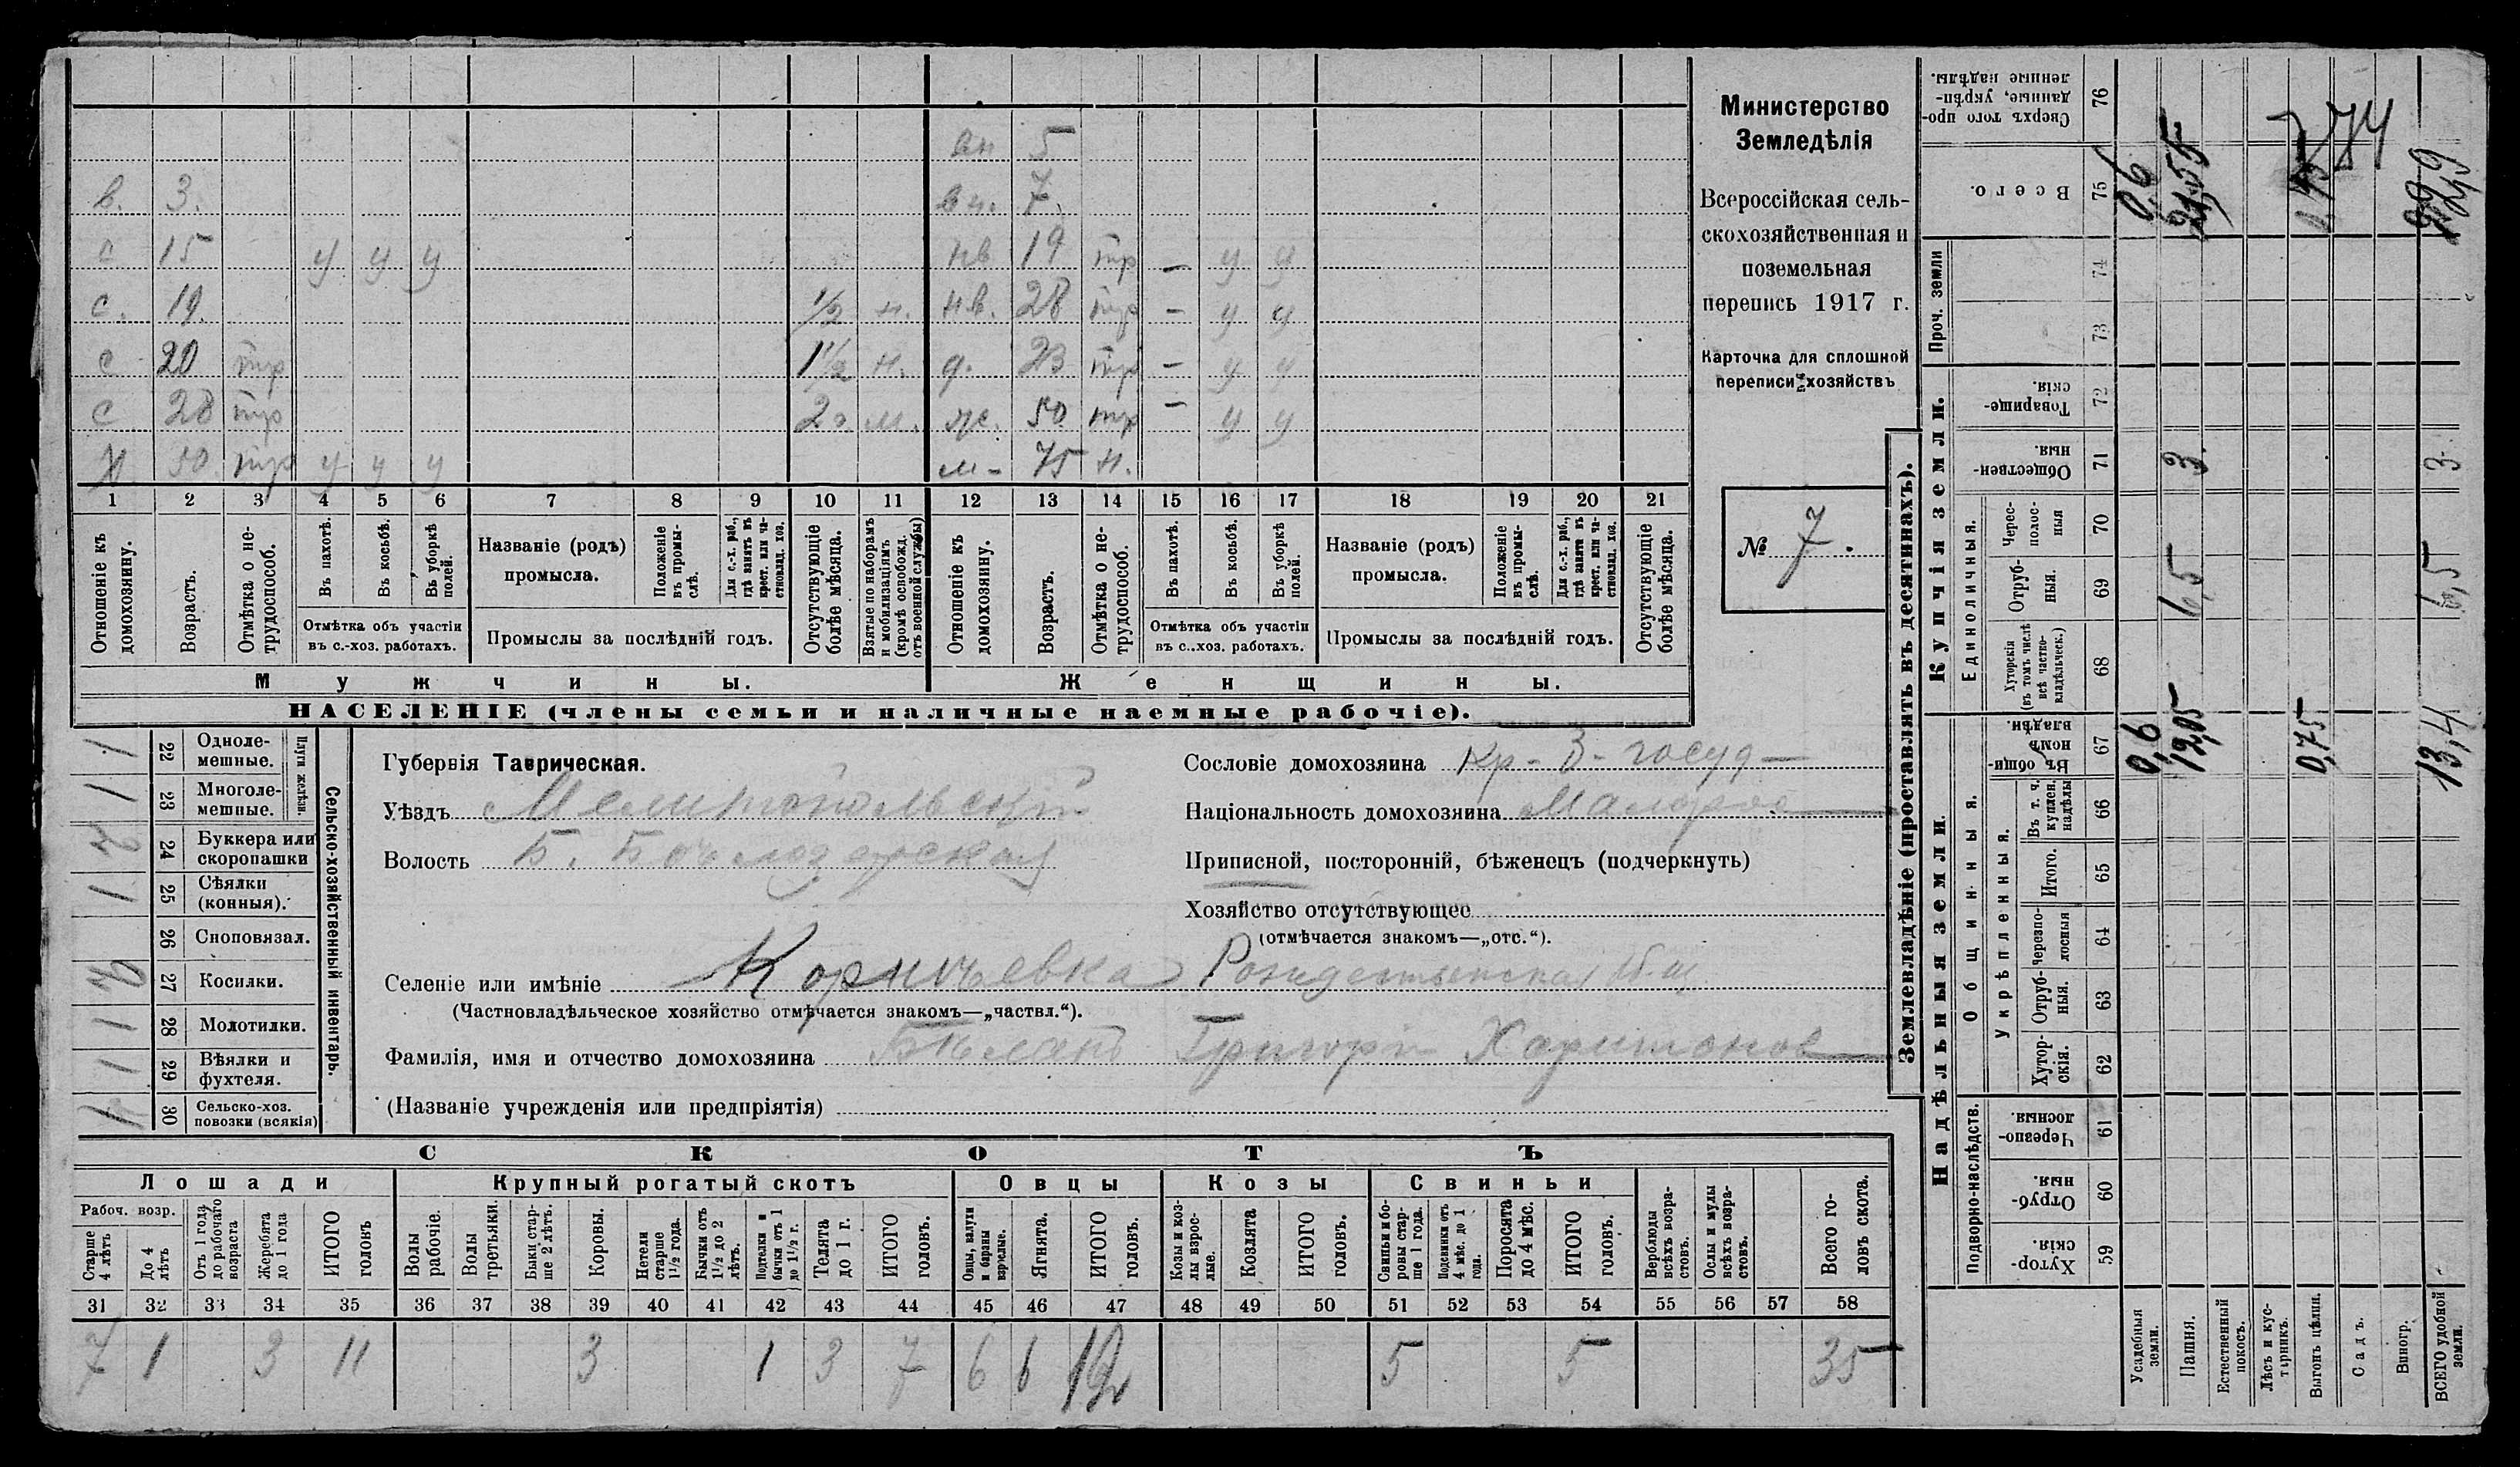 вн 5
в. 3. вн. 7.
с 15 у у у нв 19 тр — у у
с. 19. 1/2 н. нв. 28 тр — у у
с 20 тр 1 1/2 н. д. 23 тр — у у
с 28 тр 2 м. ж. 50 тр — у у
50 тр у у у м- 75 н.
1 2 3 4 5 6 7 8 9 10 11 12 13 14 15 16 17 18 19 20 21
Отношеніе къ домохозяину.
Возрастъ.
Отмѣтка о нетрудоспособ.
Въ пахотѣ.
Въ косьбѣ.
Въ уборкѣ полей.
Отмѣтка объ участіи
въ с.-хоз. работахъ.
Названіе (родъ)
промысла.
Положеніе въ промыслѣ.
Для с.-х. раб., гдѣ занятъ въ крест. или частновлад. хоз.
Промыслы за послѣдній годъ.
Отсутствующіе болѣе мѣсяца.
Взятые по наборамъ и мобилизаціямъ (кромѣ освобожд. отъ военной службы)
Отношеніе къ домохозяину.
Возрастъ.
Отмѣтка о нетрудоспособ.
Въ пахотѣ.
Въ косьбѣ.
Въ уборкѣ полей.
Отмѣтка объ участіи
въ с..хоз. работахъ.
Названіе (родъ)
промысла.
Положеніе въ промыслѣ.
Для с.-х. раб., гдѣ занята въ крест. или частновлад. хоз.
Промыслы за послѣдній годъ.
Отсутствующіе болѣе мѣсяца.
Мужчины. Женщины.
НАСЕЛЕНІЕ (члены семьи и наличные наемные рабочіе).
Министерство
Земледѣлія
Всероссійская сель-
скохозяйственная и
поземельная
перепись 1917 г.
Карточка для сплошной
переписи хозяйствъ
№ 7.
Сельско-хозяйственный инвентарь.
Плуги желѣзн.
1 22 Одноле-
мешные.
1 23 Многоле-
мешные.
2 24 Буккера или
скоропашки
1 25 Сѣялки
(конныя).
26 Сноповязал.
2 27 Косилки.
1 28 Молотилки.
1 29 Вѣялки и
фухтеля.
30 Сельско-хоз.
повозки (всякія)
Губернія Таврическая.
Уѣздъ Мелитопольскій
Волость Б. Бѣлозерская
Селеніе или имѣніе Рождественская
(Частновладѣльческое хозяйство отмѣчается знакомъ—„частвл.“).
Фамилія, имя и отчество домохозяина Григорій Харитонов
(Названіе учрежденія или предпріятія)
Сословіе домохозяина Кр-З- госуд
Національность домохозяина Малорос
Приписной, посторонній, бѣженецъ (подчеркнуть)
Хозяйство отсутствующее
(отмѣчается знакомъ—„отс.“).
СКОТЪ
Лошади Крупный рогатый скотъ Овцы Козы Свиньи
Рабоч. возр.
Старше 4 лѣтъ
До 4 лѣтъ
Отъ 1 года до рабочаго возраста
Жеребята до 1 года
ИТОГО головъ
Волы рабочіе.
Волы третьяки.
Быки старше 2 лѣтъ.
Коровы.
Нетели старше 1 1/2 года.
Бычки отъ 1 1/2 до 2 лѣтъ.
Подтелки и бычки отъ 1 до 1 1/2 г.
Телята до 1 г.
ИТОГО головъ.
Овцы, валухи и бараны взрослые.
Ягнята.
ИТОГО головъ.
Козы и козлы взрослые.
Козлята
ИТОГО головъ.
Свиньи и боровы старше 1 года.
Подсвинки отъ 4 мѣс. до 1 года.
Поросята до 4 мѣс.
ИТОГО головъ.
Верблюды всѣхъ возрастовъ.
Ослы и мулы всѣхъ возрастовъ.
Всего головъ скота.
31 32 33 34 35 36 37 38 39 40 41 42 43 44 45 46 47 48 49 50 51 52 53 54 55 56 57 58
7 1 3 11 3 1 3 7 6 6 12 5 5 35
Землевладѣніе (проставлять въ десятинахъ).
Надѣльныя земли. Купчія земли. Проч. земли
Подворно-наслѣдств. Общинныя. Единоличныя.
Укрѣпленныя.
59 Хуторскія.
60 Отрубныя.
61 Черезполосныя
62 Хуторскія.
63 Отрубныя.
64 Черезполосныя
65 Итого.
66 Въ т. ч. куплен. надѣлы
67 Въ общинномъ владѣн.
68 Хуторскія (въ томъ числѣ всѣ частновладѣльческ.)
69 Отрубныя.
70 Чересполосныя
71 Общественныя.
72 Товарищескія.
73
74
75 Всего.
76 Сверхъ того проданные, укрѣпленные надѣлы.
Усадебныя земли. 0,6 0,6
Пашня. 12,05 6,5 3. 21,55
Естественный покосъ.
Лѣсъ и кустарникъ.
Выгонъ цѣлин. 0,75 0,75
Садъ.
Виногр.
ВСЕГО удобной земли. 13,4 6,5 3 22,9